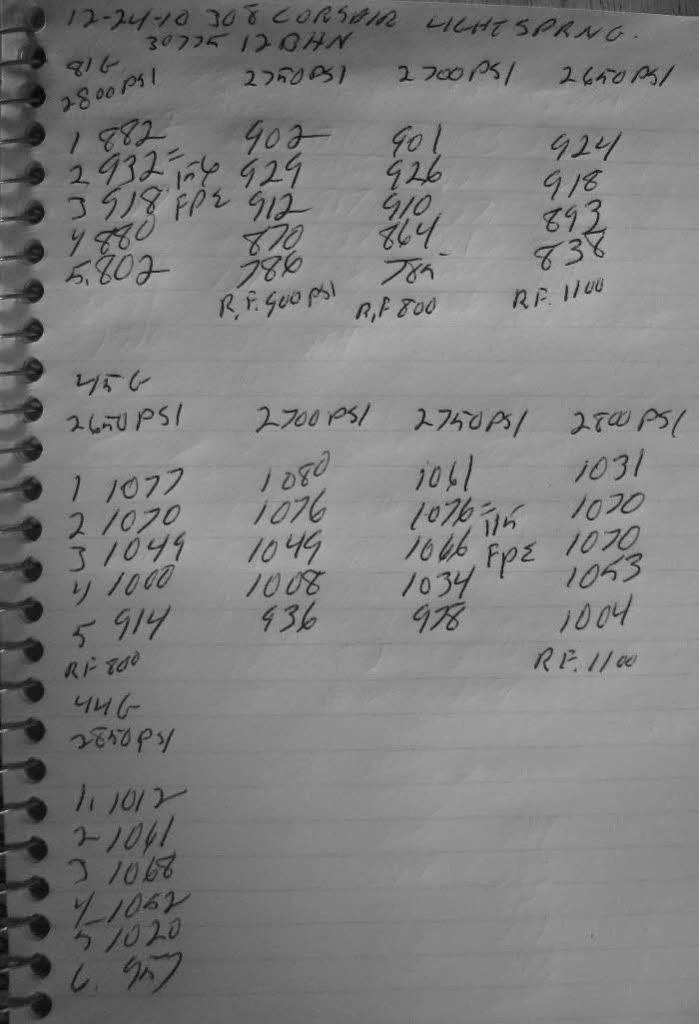 12-24-10 308 CORSAIR LIGHT SPRNG.
30775 12 BHN
81G
2800 PSI 2750 PSI 2700 PSI 2650 PSI
1 882 902 901 924
2 932 = 154 929 926 918
3 918 FPE 912 910 893
4 880 870 864 838
5. 802 786 785
R.F. 900 PSI R.F 800 R.F. 1100
45 G
2650 PSI 2700 PSI 2750 PSI 2800 PSI
1 1077 1080 1061 1031
2 1070 1076 1076 = 115 1070
3 1049 1049 1066 FPE 1070
4 1000 1008 1034 1053
5 914 936 978 1004
R.F 800 R.F. 1100
44 G
2850 PSI
1. 1012
2 1061
3 1068
4 1052
5 1020
6. 957